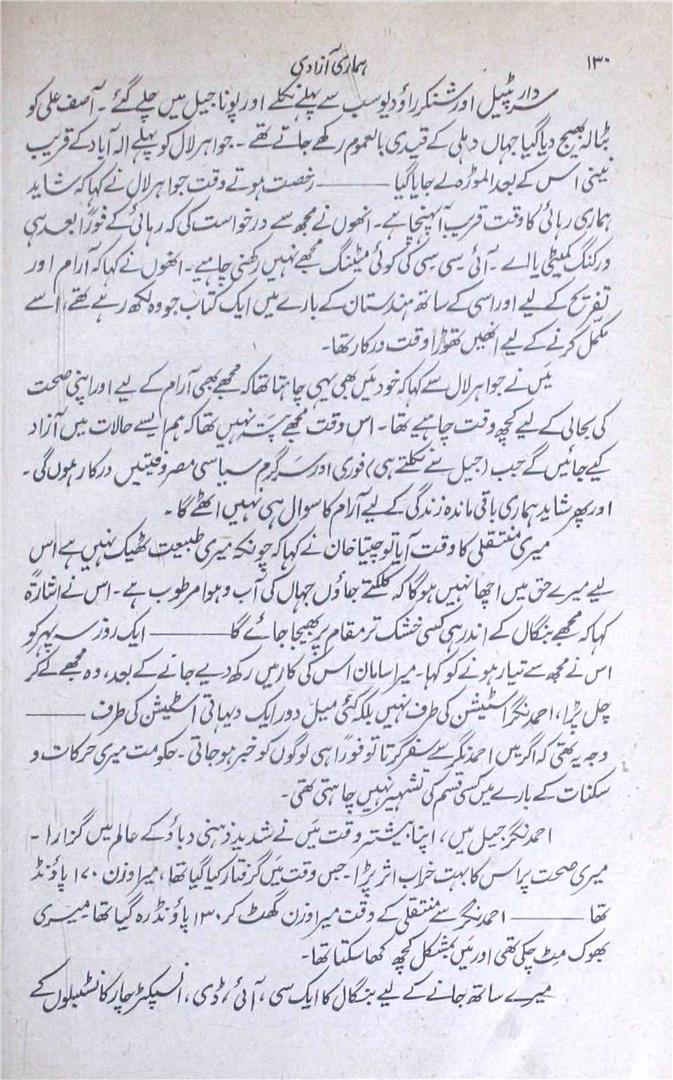 ۱۳۰
ہماری آزادی
سردار پٹیل اور شنکر راؤ دیو سب سے پہلے نکلے اور پونا جیل میں چلے گئے۔ آصف علی کو
بٹالہ بھیج دیا گیا جہاں دہلی کے قیدی بالعموم رکھے جاتے تھے۔ جواہر لال کو پہلے الہ آباد کے قریب
نینی اس کے بعد الموڑہ لے جایا گیا ——— رخصت ہوتے وقت جواہر لال نے کہا کہ شاید
ہماری رہائی کا وقت قریب آ پہنچا ہے۔ انھوں نے مجھ سے درخواست کی کہ رہائی کے فوراً بعد ہی
ورکنگ کمیٹی یا اے۔ آئی سی سی کی کوئی میٹنگ مجھے نہیں رکھنی چاہیے۔ انھوں نے کہا کہ آرام اور
تفریح کے لیے اور اسی کے ساتھ ہندستان کے بارے میں ایک کتاب جو وہ لکھ رہے تھے، اسے
مکمل کرنے کے لیے انھیں تھوڑا وقت درکار تھا۔
میں نے جواہر لال سے کہا کہ خود میں بھی یہی چاہتا تھا کہ مجھے بھی آرام کے لیے اور اپنی صحت
کی بحالی کے لیے کچھ وقت چاہیے تھا۔ اس وقت مجھے پتہ نہیں تھا کہ ہم ایسے حالات میں آزاد
کیے جائیں گے جب (جیل سے نکلتے ہی) فوری اور سرگرم سیاسی مصروفیتیں درکار ہوں گی۔
اور پھر شاید ہماری باقی ماندہ زندگی کے لیے آرام کا سوال ہی نہیں اٹھے گا۔
میری منتقلی کا وقت آیا تو چیتا خان نے کہا کہ چونکہ میری طبیعت ٹھیک نہیں ہے اس
لیے میرے حق میں اچھا نہیں ہوگا کہ کلکتے جاؤں جہاں کی آب و ہوا مرطوب ہے۔ اس نے اشارۃً
کہا کہ مجھے بنگال کے اندر ہی کسی خشک تر مقام پر بھیجا جائے گا ——— ایک روز سہ پہر کو
اس نے مجھ سے تیار ہونے کو کہا۔ میرا سامان اس کی کار میں رکھ دیے جانے کے بعد، وہ مجھے لے کر
چل پڑا، احمد نگر اسٹیشن کی طرف نہیں بلکہ کئی میل دور ایک دیہاتی اسٹیشن کی طرف ———
وجہ یہ تھی کہ اگر میں احمد نگر سے سفر کرتا تو فوراً ہی لوگوں کو خبر ہو جاتی۔ حکومت میری حرکات و
سکنات کے بارے میں کسی قسم کی تشہیر نہیں چاہتی تھی۔
احمد نگر جیل میں، اپنا بیشتر وقت میں نے شدید ذہنی دباؤ کے عالم میں گزارا۔
میری صحت پر اس کا بہت خراب اثر پڑا۔ جس وقت میں گرفتار کیا گیا تھا، میرا وزن ۱۷۰ پاؤنڈ
تھا ——— احمد نگر سے منتقلی کے وقت میرا وزن گھٹ کر ۱۳۰ پاؤنڈ رہ گیا تھا میری
بھوک مٹ چکی تھی اور میں بمشکل کچھ کھا سکتا تھا۔
میرے ساتھ جانے کے لیے بنگال کا ایک سی، آئی، ڈی، انسپکٹر چار کانسٹبلوں کے